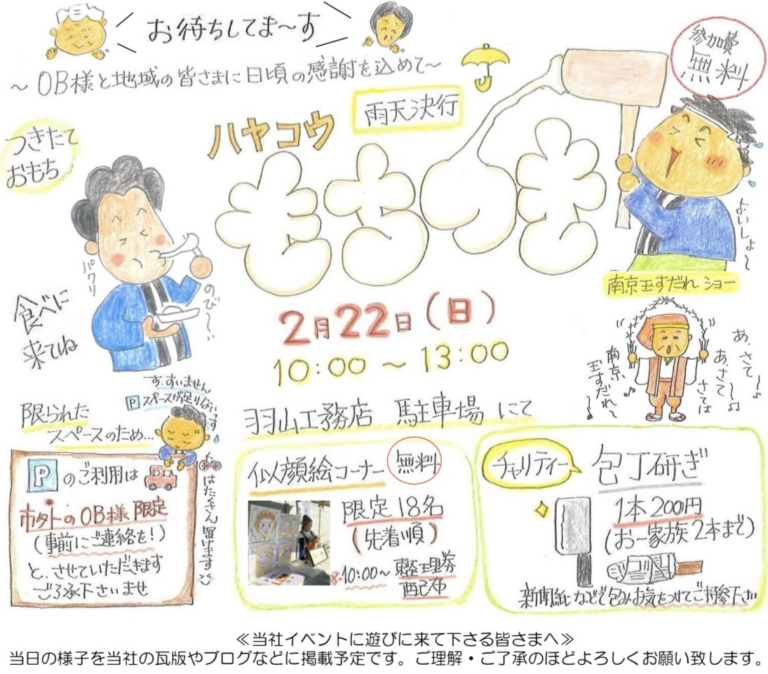 お待ちしてま〜す
〜OB様と地域の皆さまに日頃の感謝を込めて〜
参加費
無料
雨天決行
ハヤコウ
もちつき
つきたて
おもち
パクリ
のび〜い
食べに
来てね
よいしょ〜
2月22日(日)
10:00〜13:00
羽山工務店 駐車場にて
南京玉すだれショー
あ、さて〜
あ、さて〜
さては
南京
玉すだれ〜
す、すいません
Pスペースが足りないっす
限られた
スペースのため…
Pのご利用は
市外のOB様限定
(事前にご連絡を!)
と、させていただきます
ご了承下さいませ
はたさん届けます
似顔絵コーナー
無料
限定18名
(先着順)
※10:00〜整理券
配布
チャリティー
包丁研ぎ
1本200円
(お一家族2本まで)
新聞紙などで包みお気をつけてご持参下さい
≪当社イベントに遊びに来て下さる皆さまへ≫
当日の様子を当社の瓦版やブログなどに掲載予定です。ご理解・ご了承のほどよろしくお願い致します。